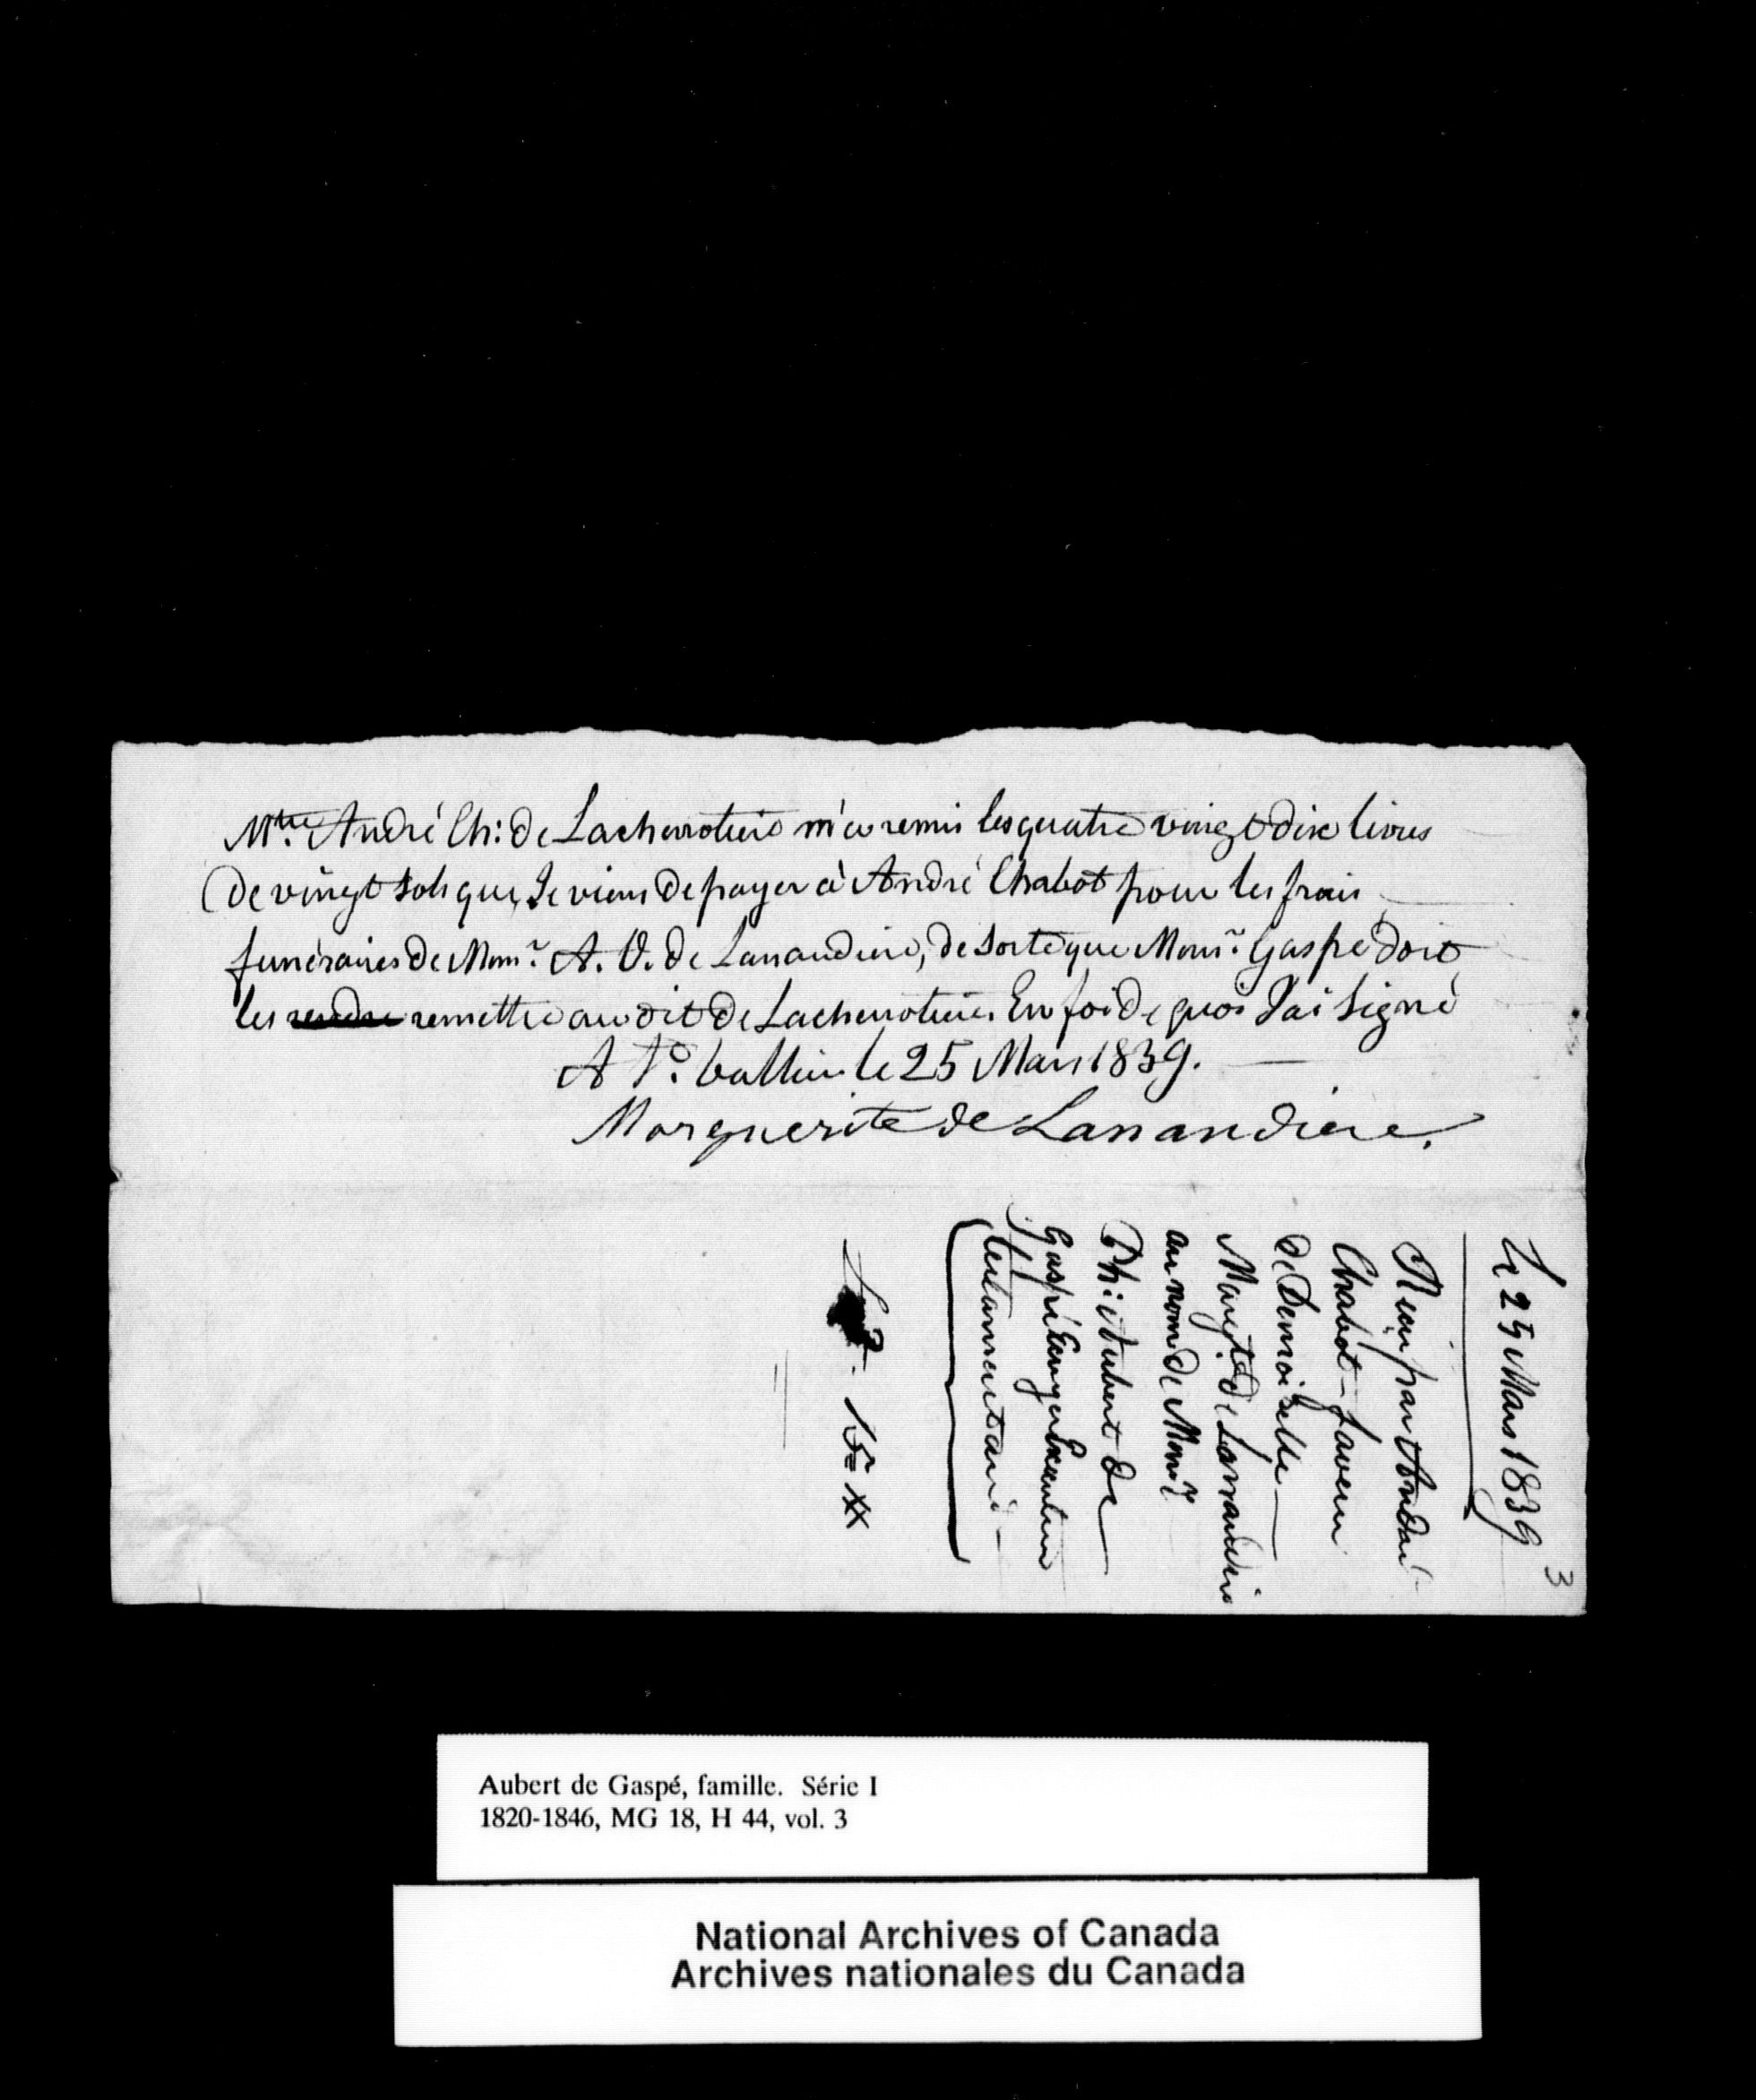 Mtre. André Ch: de Lachevrotiere m'a remis les quatre vingt dix livres
de vingt sols que Je viens de payer à André Chabot pour les frais
funéraires de Monsr. A. V. de Lanaudiere, de sorte que Monsr. Gaspé doit
les rendre remettre au dit de Lachevrotiere. En foi de quoi J'ai signé
A St. Vallier le 25 Mars 1839.
Marguerite de Lanaudiere.
3
Le 25 Mars 1839
Reçu par André
Chabot – faveur
de Demoiselle
Margte. de Lanaudiere
au nom de Monsr.
Ph: Aubert de
Gaspé Ecuyer Executeur
testamentaire
Aubert de Gaspé, famille. Série I
1820-1846, MG 18, H 44, vol. 3
National Archives of Canada
Archives nationales du Canada